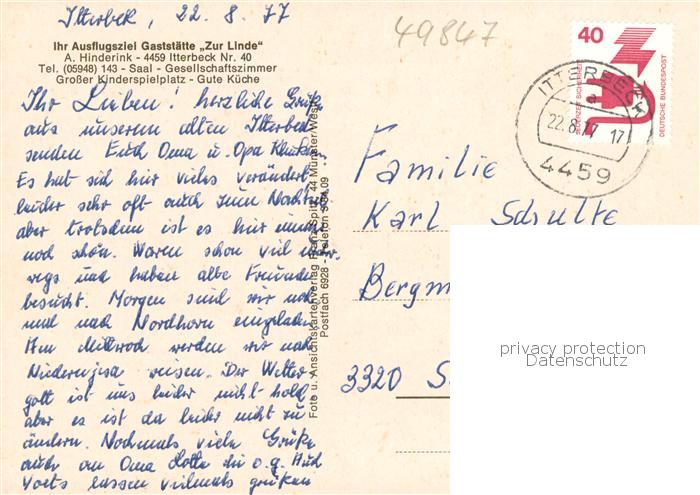 Itterbek, 22.8.77
49847
Ihr Ausflugsziel Gaststätte „Zur Linde"
A. Hinderink - 4459 Itterbeck Nr. 40
Tel. (05948) 143 - Saal - Gesellschaftszimmer
Großer Kinderspielplatz - Gute Küche
Ihr Lieben! herzliche Grüße
aus unserem alten Itterbeck
senden Euch Oma u. Opa
Es hat sich hier vieles verändert
leider sehr oft auch zum Nachteil
aber trotzdem ist es hier immer
noch schön. Waren schon viel unter-
wegs und haben alte Freunde
besucht. Morgen sind wir noch
mal nach Nordhorn eingeladen
Am Mittwoch werden wir nach
reisen. Der Wetter-
gott ist uns leider nicht hold
aber es ist da leider nicht zu
ändern. Nochmals viele Grüße
auch an Oma Lotte die o.g. Auch
Voets lassen vielmals grüßen
Foto u. Ansichtskartenverlag Franz Spitzer 44 Münster/Westf.
Postfach 6928 - Telefon
40
JEDERZEIT SICHERHEIT
DEUTSCHE BUNDESPOST
ITTERBECK
a
22.8.77 17
4459
Familie
Karl Schulte
Bergm
3320 S
privacy protection
Datenschutz